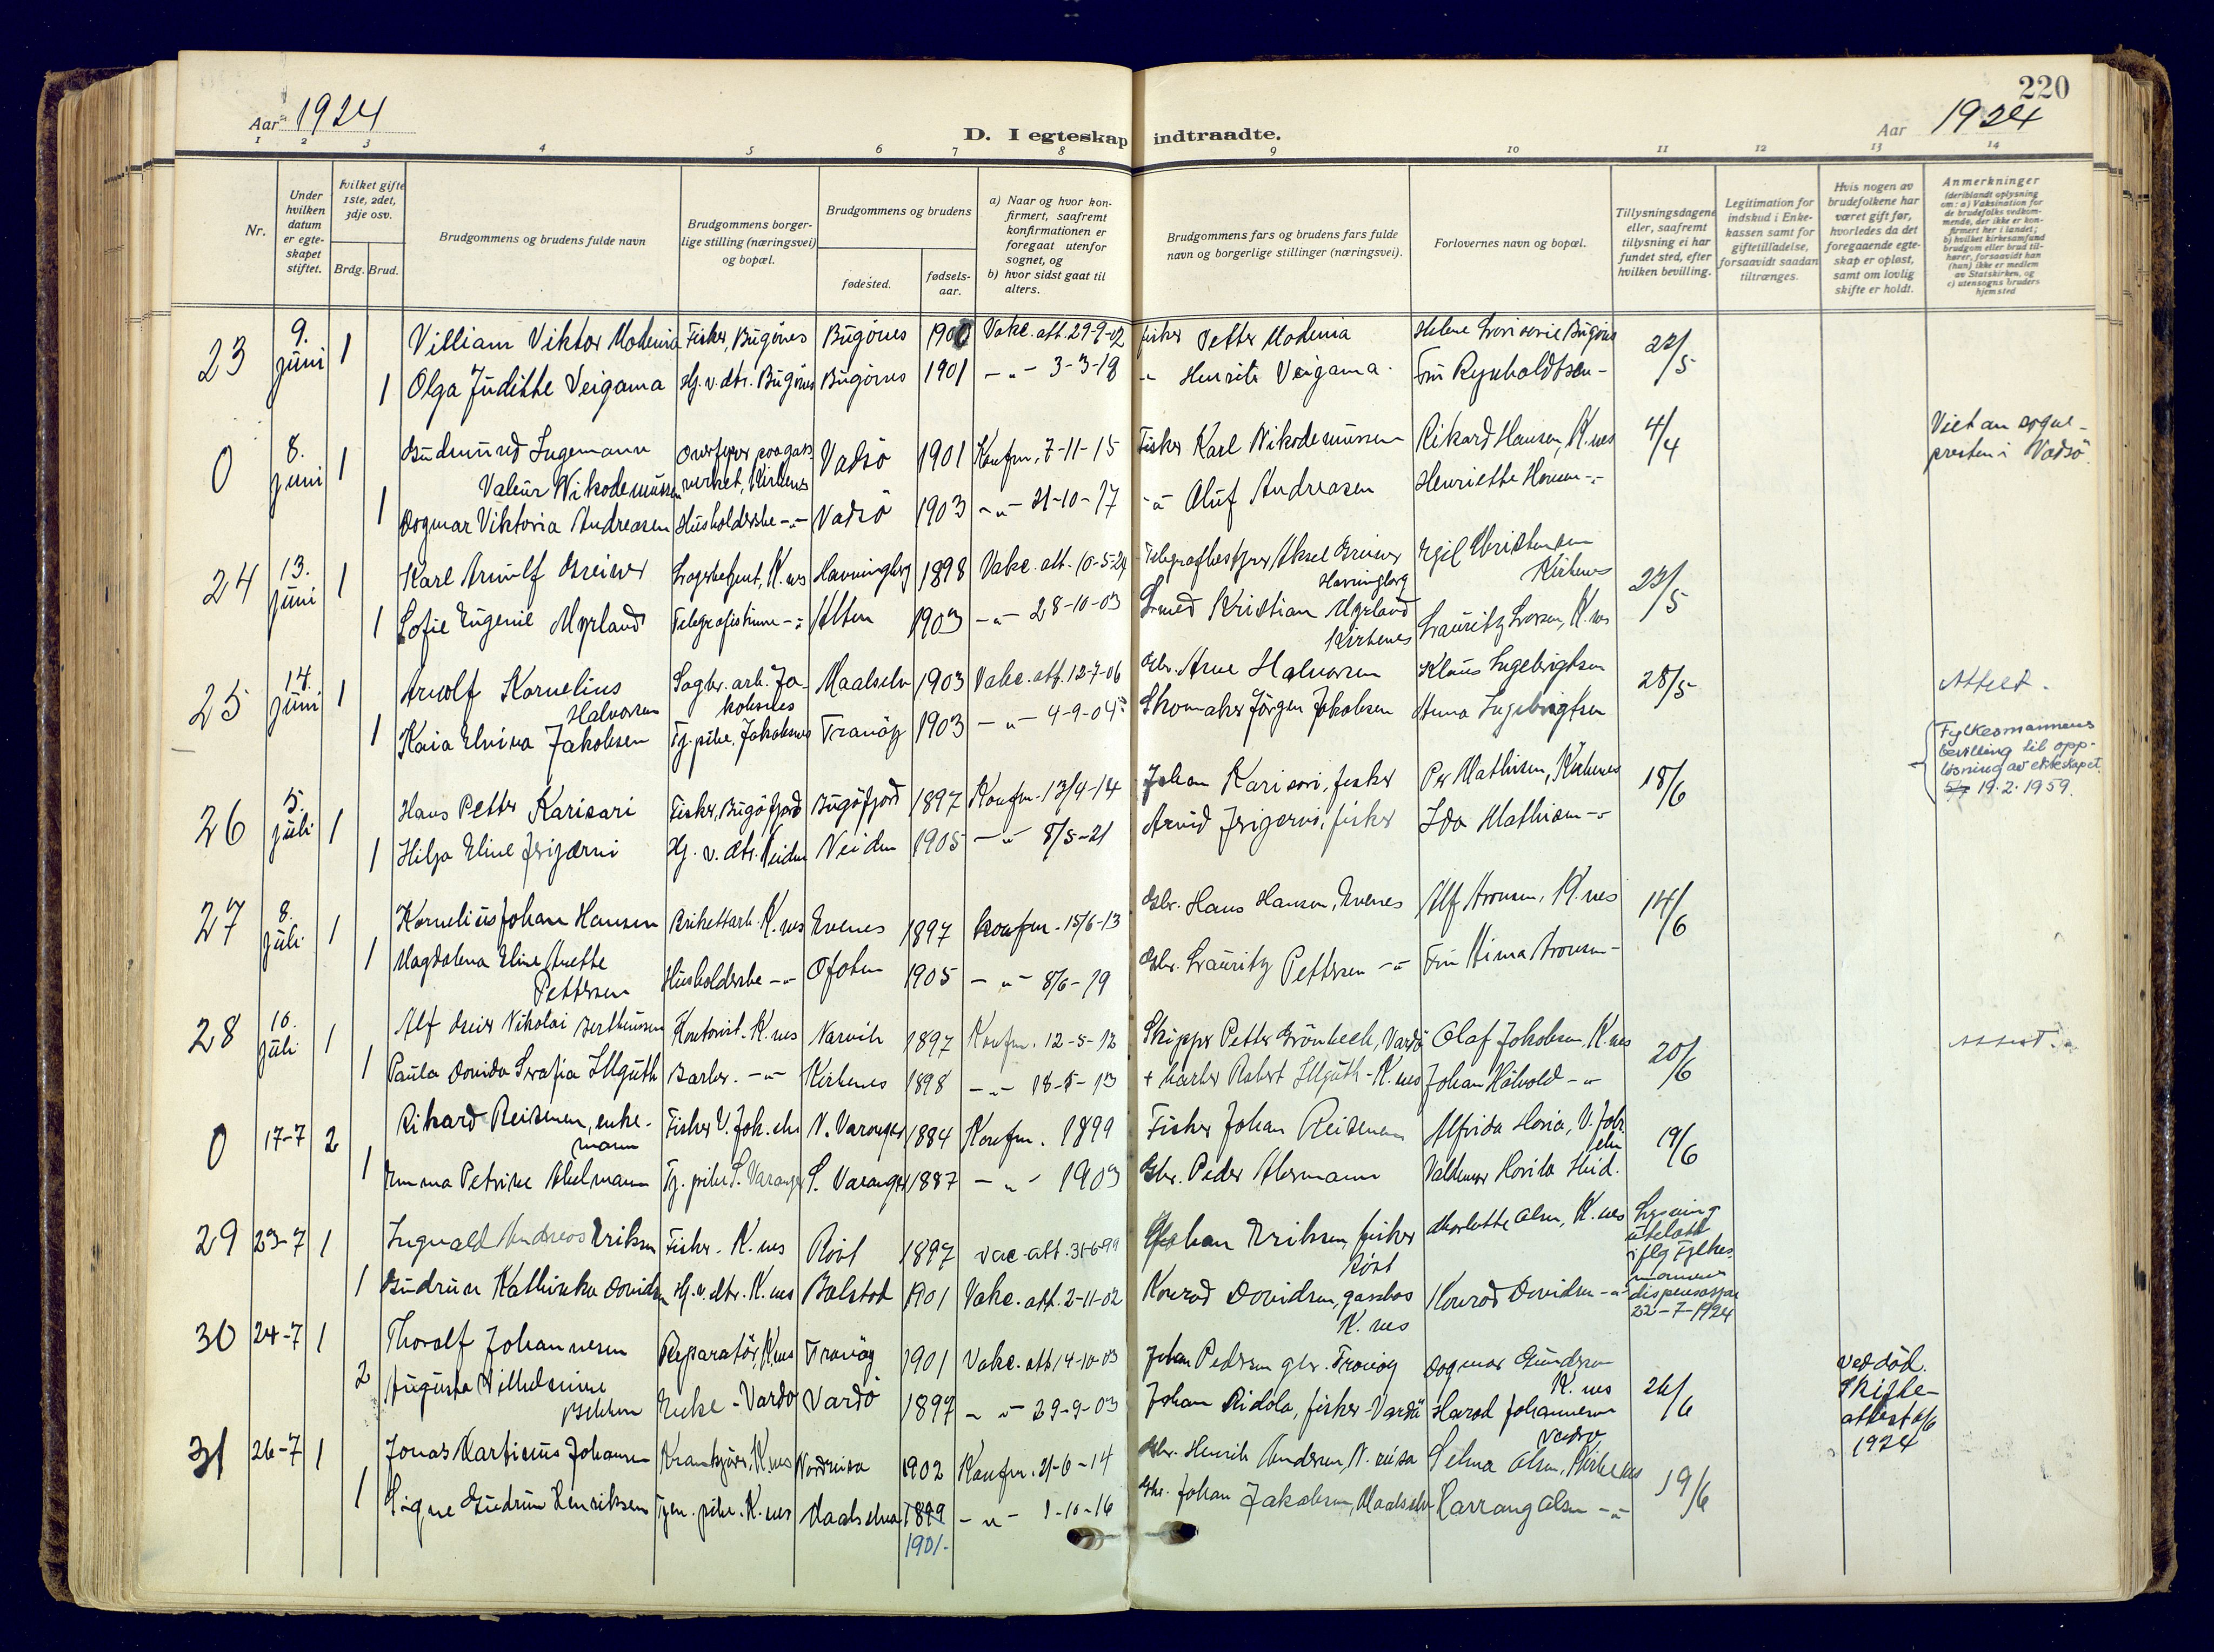 220
Aar 1924
D. I egteskap indtraadte.
Aar 1924
1 2 3 4 5 6 7 8 9 10 11 12 13 14
Nr.
Under hvilken datum er egteskapet stiftet.
Hvilket gifte 1ste, 2det, 3dje osv.
Brdg. Brud.
Brudgommens og brudens fulde navn
Brudgommens borgerlige stilling (næringsvei) og bopæl.
Brudgommens og brudens
fødested.
fødselsaar.
a) Naar og hvor konfirmert, saafremt konfirmationen er foregaat utenfor sognet, og
b) hvor sidst gaat til alters.
Brudgommens fars og brudens fars fulde navn og borgerlige stillinger (næringsvei).
Forlovernes navn og bopæl.
Tillysningsdagene eller, saafremt tillysning ei har fundet sted, efter hvilken bevilling.
Legitimation for indskud i Enkekassen samt for giftetilladelse, forsaavidt saadan tiltrænges.
Hvis nogen av brudefolkene har været gift før, hvorledes da det foregaaende egteskap er opløst, samt om lovlig skifte er holdt.
Anmerkninger
(deriblandt oplysning om: a) Vaksination for de brudefolks vedkommende, der ikke er konfirmert her i landet;
b) hvilket kirkesamfund brudgom eller brud tilhører, forsaavidt han (hun) ikke er medlem av Statskirken, og
c) utensogns bruders hjemsted
23 9. juni 1 Villiam Viktor Modenia Fisker, Bugönes Bugönes 1900 Vakc. att. 29-9-02 fisker Petter Modenia Helene Bugönes 22/5
1 Olga Juditte Veigama Hj. v. dtr. Bugönes Bugönes 1901 -"- 3-3-18 " Henrik Veigama Fru Reynholdtsen -
0 8. juni 1 Gudmund Ingemann Valeur Nikodemussen verket, Kirkenes Vadsö 1901 Konfm. 7-11-15 Fisker Karl Nikodemussen Rikard Hansen, K.nes 4/4 Viet av sognepresten i Vadsö.
1 Dagmar Viktoria Andreasen Husholderske -"- Vadsö 1903 -"- 21-10-17 -"- Oluf Andreasen Henriette Hansen -"-
24 13. juni 1 Karl Arnulf Greiner Lagerbetjent, K.nes Havningberg 1898 Vakc. att. 10-5-24 Telegrafbestyrer Aksel Greiner Havningberg Egil Christensen Kirkenes 22/5
1 Sofie Eugenie Myrland Telegrafistinne -"- Alten 1903 -"- 28-10-03 Smed Kristian Myrland Kirkenes Lauritz Larsen, K.nes
25 14. juni 1 Arnolf Kornelius Halvorsen Sagbr. arb. Jakobsnes Maalselv 1903 Vakc. att. 12-7-06 Gbr. Arne Halvorsen Klaus Ingebrigtsen 28/5 Attest.
1 Kaia Elvina Jakobsen Tj. pike, Jakobsnes Tranöy 1903 -"- 4-9-04 Skomaker Jörgen Jakobsen Anna Ingebrigtsen
Fylkesmannens
bevilling til opp-
løsning av ekteskapet
19.2.1959.
26 5. juli 1 Hans Petter Karisari Fisker, Bugöfjord Bugöfjord 1897 Konfm. 13/4-14 Johan Karisari, fisker Per Mathisen, Kirkenes 18/6
1 Hilja Eline Hj. v. dtr. Neiden Neiden 1905 -"- 8/5-21 Arvid fisker Ida Mathisen -"-
27 8. juli 1 Kornelius Johan Hansen Brikettarb. K.nes Evenes 1897 Konfm. 15/6-13 Gbr. Hans Hansen, Evenes Alf Aronsen, K.nes 14/6
1 Magdalena Eline Anette Pettersen Husholderske -"- Ofoten 1905 -"- 8/6-19 Gbr. Lauritz Pettersen -"- Fru Aronsen -
28 10. juli 1 Alf Nikolai Berthinussen Kontorist. K.nes Narvik 1897 Konfm. 12-5-12 Skipper Petter Grönbech, Vardö Olaf Jakobsen, K.nes 20/6 Attest.
1 Paula Davida Serafia Illguth Barber. -"- Kirkenes 1898 -"- 18-5-13 + barber Robert Illguth - K.nes Johan -"-
0 17-7 2 Rikard Reisenen, enkemann Fisker V. Jak. elv N. Varanger 1884 Konfm. 1899 Fisker Johan Reisenen Alfrida V. Jak. elv 19/6
1 Emma Petrine Tj. pike S. Varanger S. Varanger 1887 -"- 1903 Gbr. Peder Valdemar
29 23-7 1 Ingvald Andreas Eriksen Fisker. K.nes Röst 1897 vac. att. 31-6-99 Johan Eriksen, fisker Röst Charlotte Olsen, K.nes Lysning utelatt iflg fylkesmannens dispensasjon 22-7-1924
1 Gudrun Kathinka Davidsen Hj. v. dtr. K.nes Balstad 1901 Vakc. att. 2-11-02 Konrad Davidsen, K.nes Konrad Davidsen -"-
30 24-7 1 Thoralf Johannesen Reparatör, K.nes Tranöy 1901 Vakc. att 14-10-03 Johan Pedersen gbr. Tranöy Dagmar Gundersen K.nes 26/6 ved död. Skifteattest 6/6 1924
2 Augusta Vilhelmine Enke - Vardö Vardö 1897 -"- 29-9-03 Johan Ridola, fisker - Vardö Harald Johannesen Vadsö
31 26-7 1 Jonas Martinius Johansen K.nes Nordreisa 1902 Konfm. 21-6-14 Gbr. Henrik Andersen, N. reisa Selma Olsen, Kirkenes 19/6
1 Signe Gudrun Henriksen Tjen. pike. K.nes Maalselva 1899 -"- 1-10-16 Gbr. Johan Jakobsen, Maalselv Olsen -"-
1901.